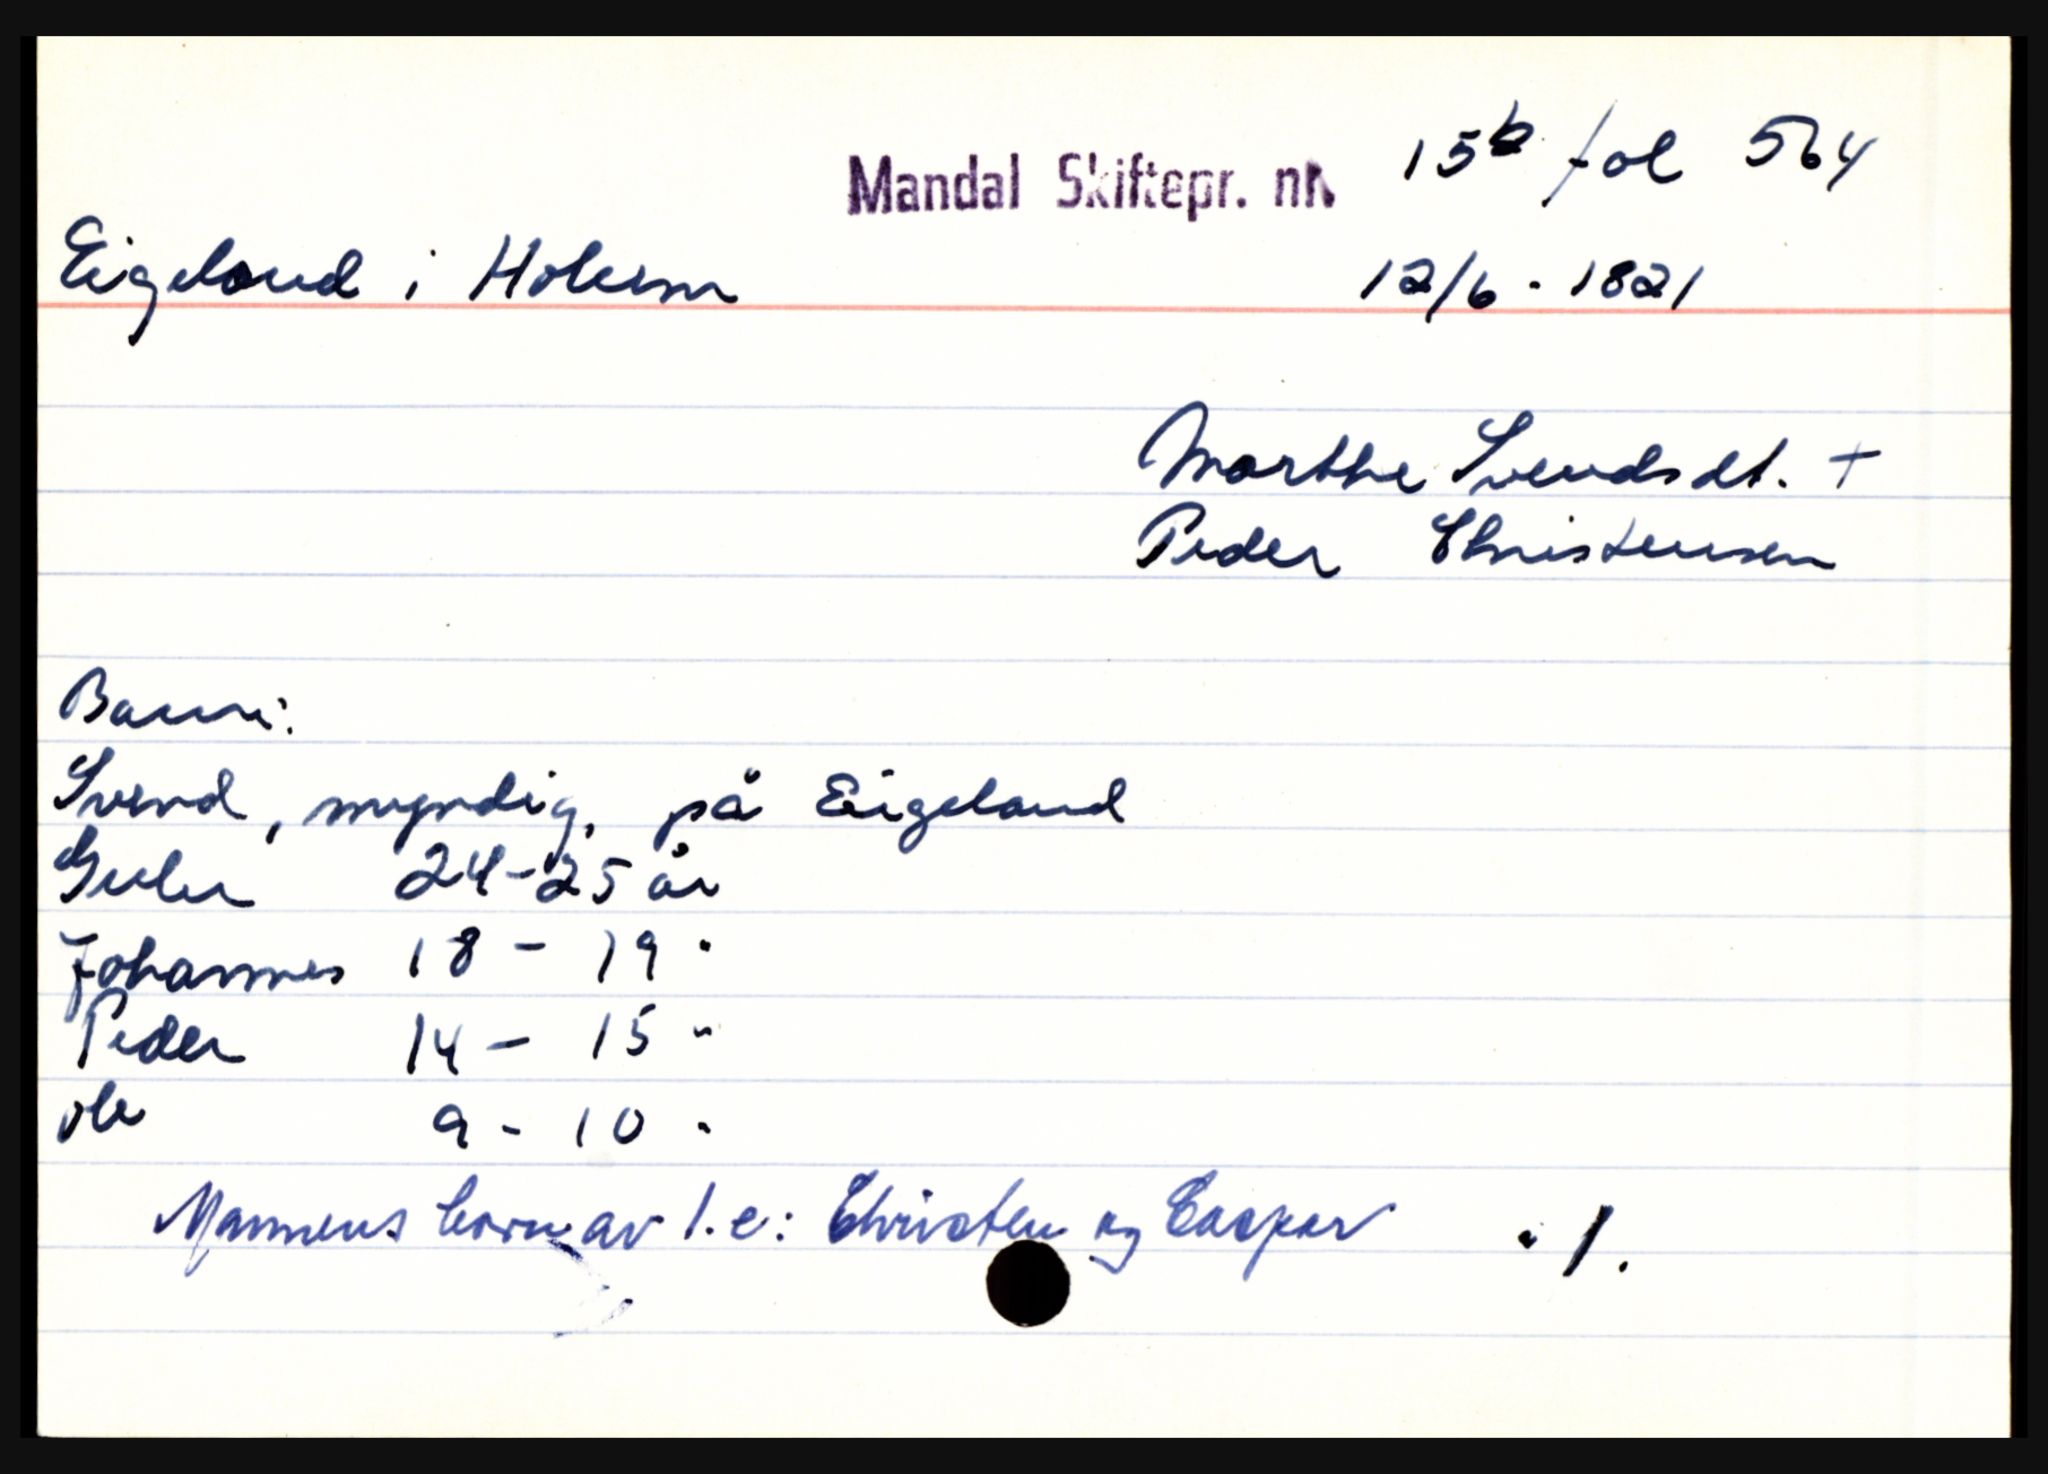 Mandal Skiftepr. nr. 15b fol 564
Eigeland i Holum 12/6 - 1821
Marthe Svendsdt. +
Peder Christensen
Barn:
Svend, myndig, på Eigeland
24-25 år
Johannes 18 - 19 "
Peder 14 - 15 "
Ole 9 - 10 "
Mannens born av 1.e: Christen og Casper ./.